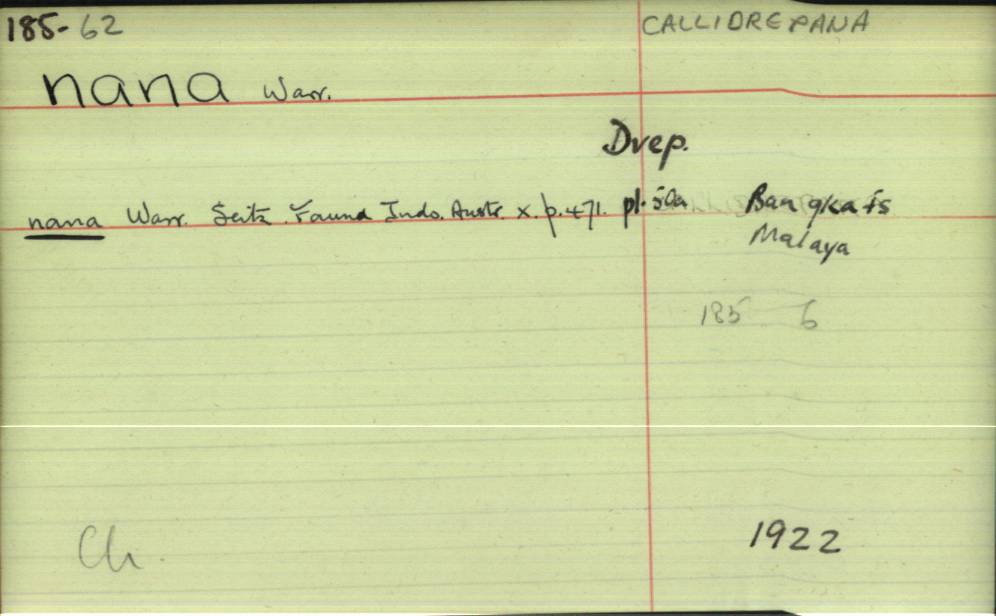 185-62 CALLIDREPANA
nana Warr.
Drep.
nana Warr. Seitz Fauna Indo. Austr. x. p. 471. pl. 50a Bangka is
Malaya
185 6
Ch. 1922